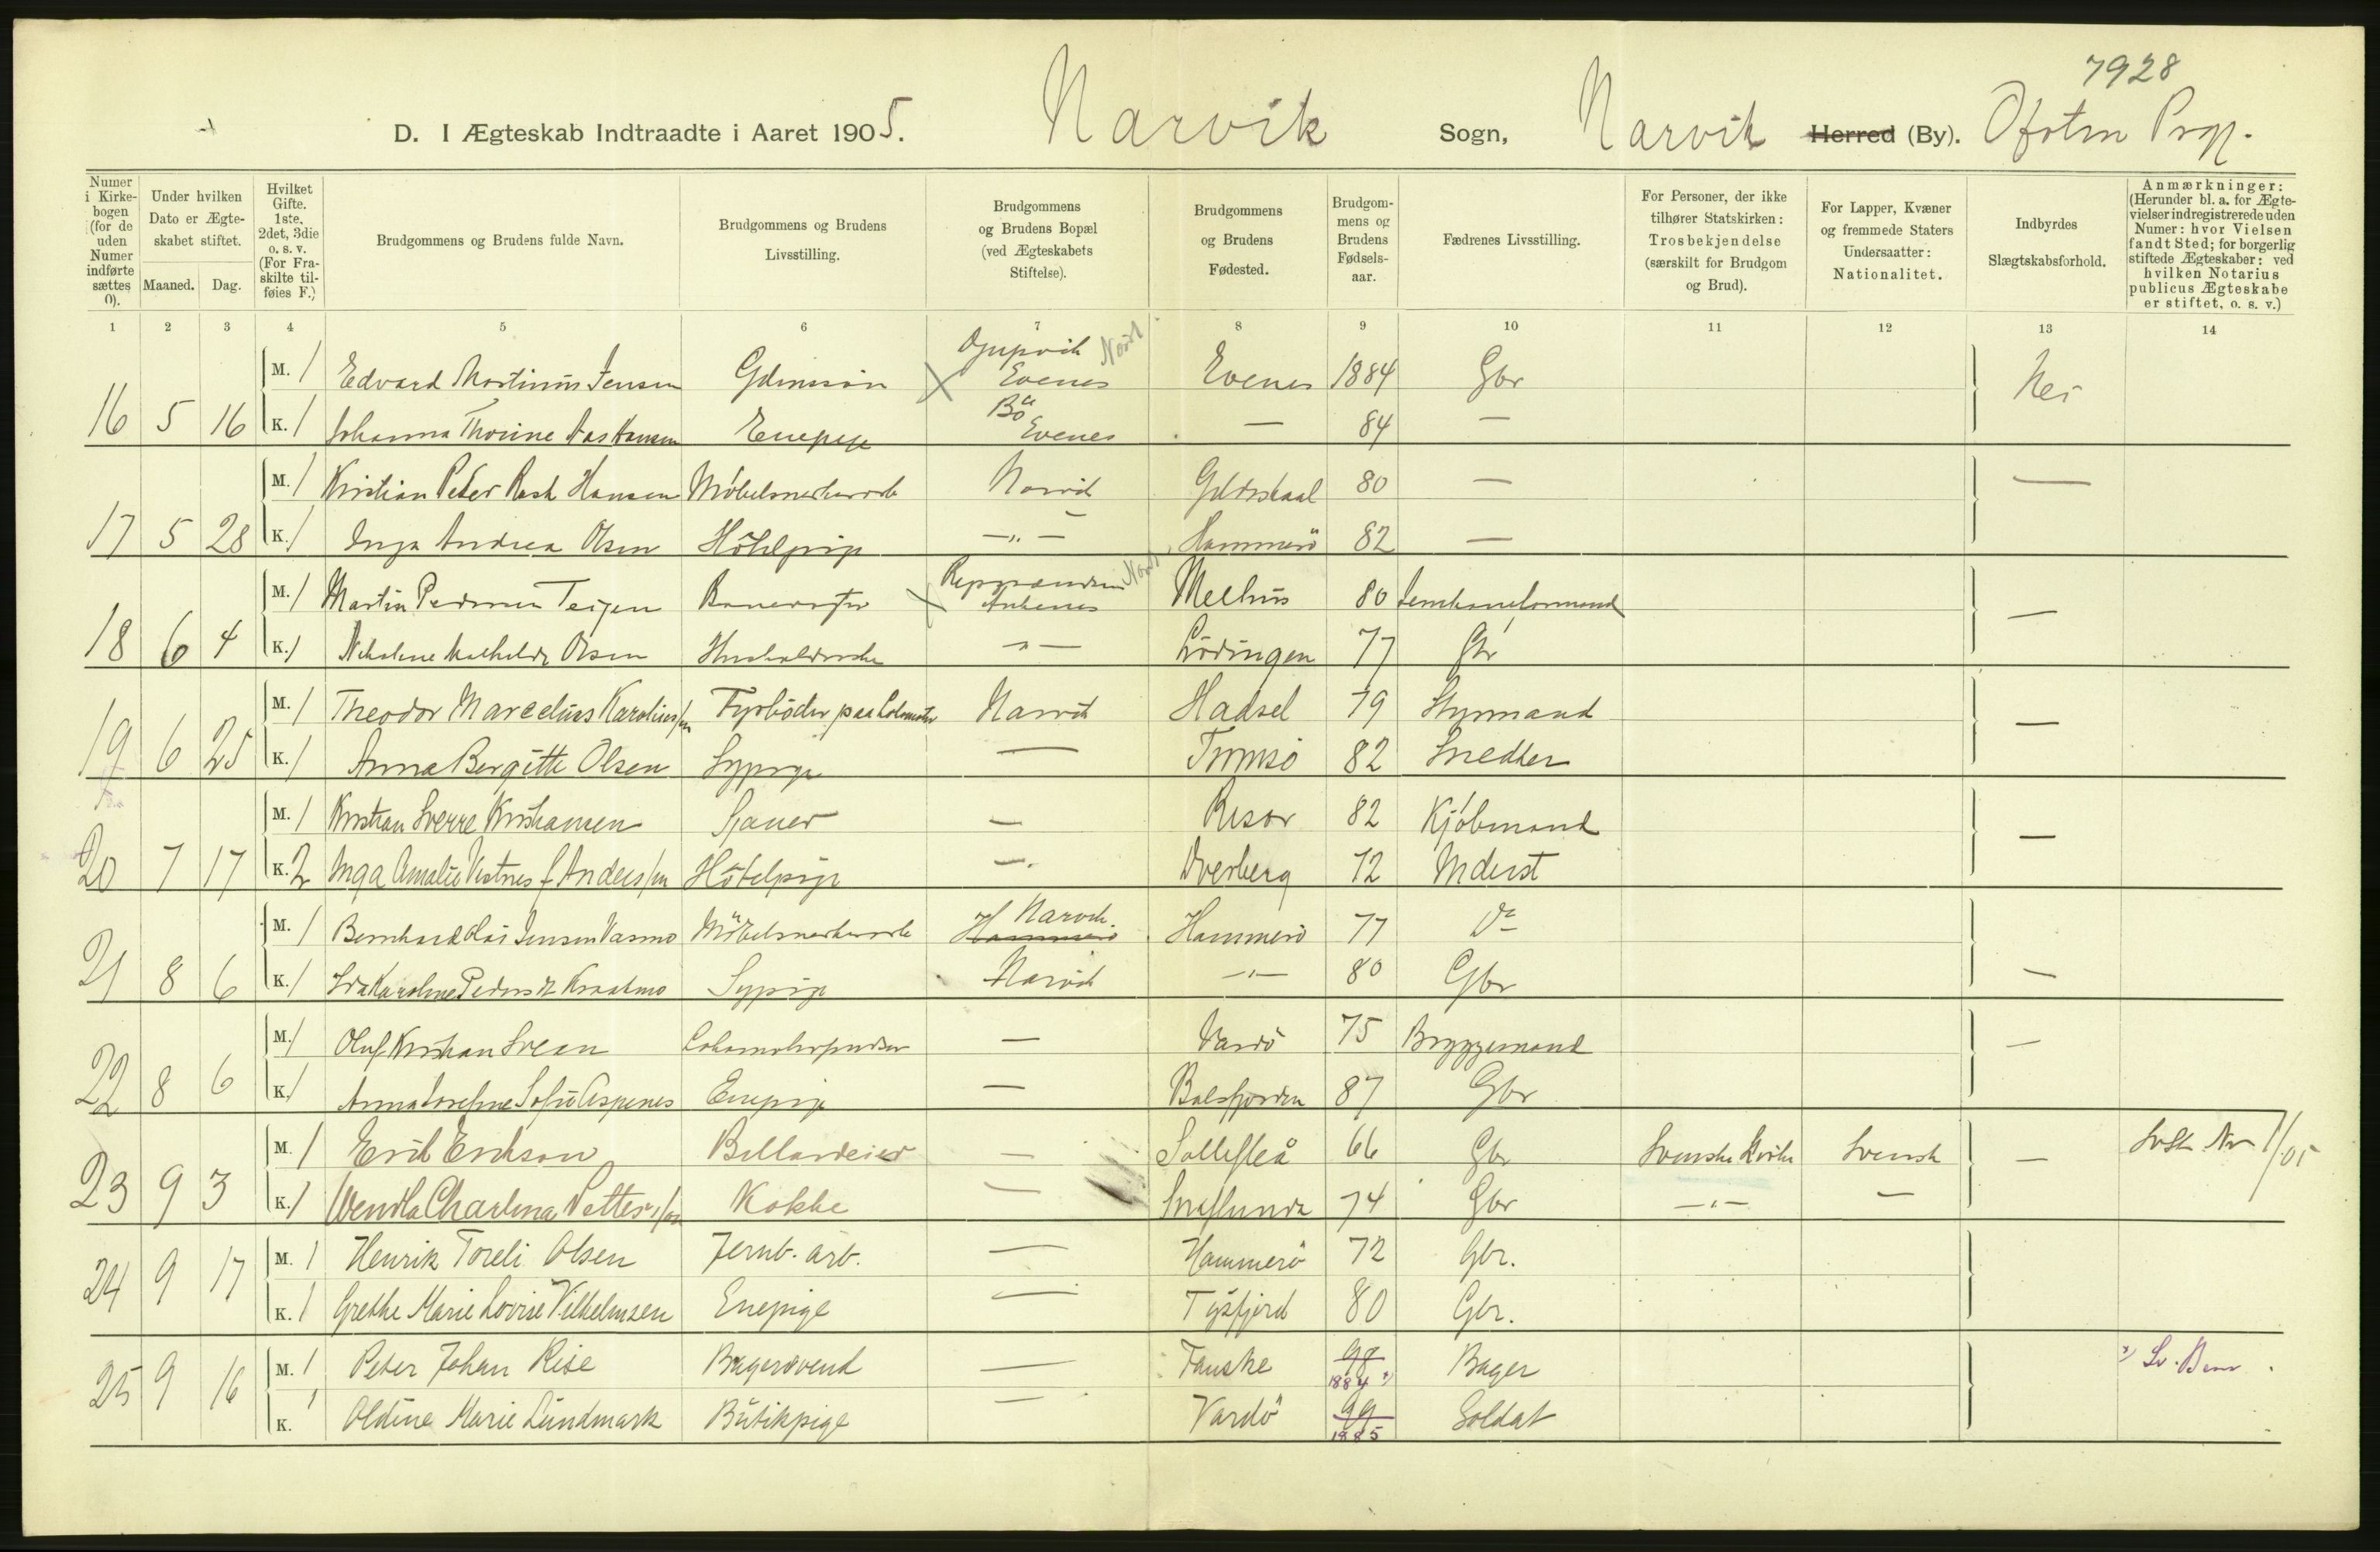 7928
D. I Ægteskab Indtraadte i Aaret 1905. Narvik Sogn, Narvik Herred (By). Ofoten Prgj.
Numer i Kirkebogen (for de uden Numer indførte sættes 0).
Under hvilken Dato er Ægteskabet stiftet.
Maaned. Dag.
Hvilket Gifte. 1ste, 2det, 3die o. s. v. (For Fraskilte tilføies F.)
Brudgommens og Brudens fulde Navn.
Brudgommens og Brudens Livsstilling.
Brudgommens og Brudens Bopæl (ved Ægteskabets Stiftelse).
Brudgommens og Brudens Fødested.
Brudgommens og Brudens Fødselsaar.
Fædrenes Livsstilling.
For Personer, der ikke tilhører Statskirken: Trosbekjendelse (særskilt for Brudgom og Brud).
For Lapper, Kvæner og fremmede Staters Undersaatter: Nationalitet.
Indbyrdes Slægtskabsforhold.
Anmærkninger: (Herunder bl. a. for Ægtevielser indregistrerede uden Numer: hvor Vielsen fandt Sted; for borgerlig stiftede Ægteskaber: ved hvilken Notarius publicus Ægteskabe er stiftet, o. s. v.)
1 2 3 4 5 6 7 8 9 10 11 12 13 14
M. 1 Edvard Martinus Jensen Evenes Evenes 1884 Gbr Nei
16 5 16 K. 1 Johanna Thorine Hansen Enepige Bö Evenes — 84 —
M. 1 Kristian Peter Rask Hansen Möbelsnekker Narvik Gildeskaal 80 — —
17 5 28 K. 1 Inga Andrea Olsen Hôtelpige —„— Hammerö 82 —
M. 1 Martin Pedersen Teigen Banevogter Ankenes Melhus 80 —
18 6 4 K. 1 Nikoline Mathilde Olsen —„— Lödingen 77 Gbr
M. 1 Theodor Marcelius Karolius/en Fyrböder paa Lokomotiv Narvik Hadsel 79 Styrmand —
19 6 25 K. 1 Anna Bergitte Olsen Sypige — Tromsö 82 Snedker
M. 1 Kristian Sverre Kristiansen Sjauer — Risör 82 Kjöbmand —
20 7 17 K. 2 Inga Amalie Vestnes f Anders/en Hôtelpige —„— Dverberg 72 Inderst
M. 1 Bernhard Olai Jensen Vasmo Möbelsnekker Narvik Hammerö Hammerö 77 Do
21 8 6 K. 1 Ida Karoline Pedersdr Kraakmo Sypige Narvik —„— 80 Gbr —
M. 1 Oluf Kristian Svean Lokomotivpudser — Vardö 75 Bryggemand —
22 8 6 K. 1 Anna Josefine Sofie Aspenes Enepige — Balsfjorden 87 Gbr
M. 1 Erik Erikson Billardeier — Sollefteå 66 Gbr Svenske Kirke Svensk — Nr 1/05
23 9 3 K. 1 Wendla Charlina Petters/en Kokke — 74 Gbr —„— —
M. 1 Henrik Toreli Olsen Jernb. arb. — Hammerö 72 Gbr.
24 9 17 K. 1 Grethe Marie Lovise Vilhelmsen Enepige — Tysfjord 80 Gbr.
M. 1 Peter Johan Rise Bagersvend — Fauske 1884 Bager
25 9 16 K. 1 Oldine Marie Lundmark Butikpige — Vardö 1885 Soldat